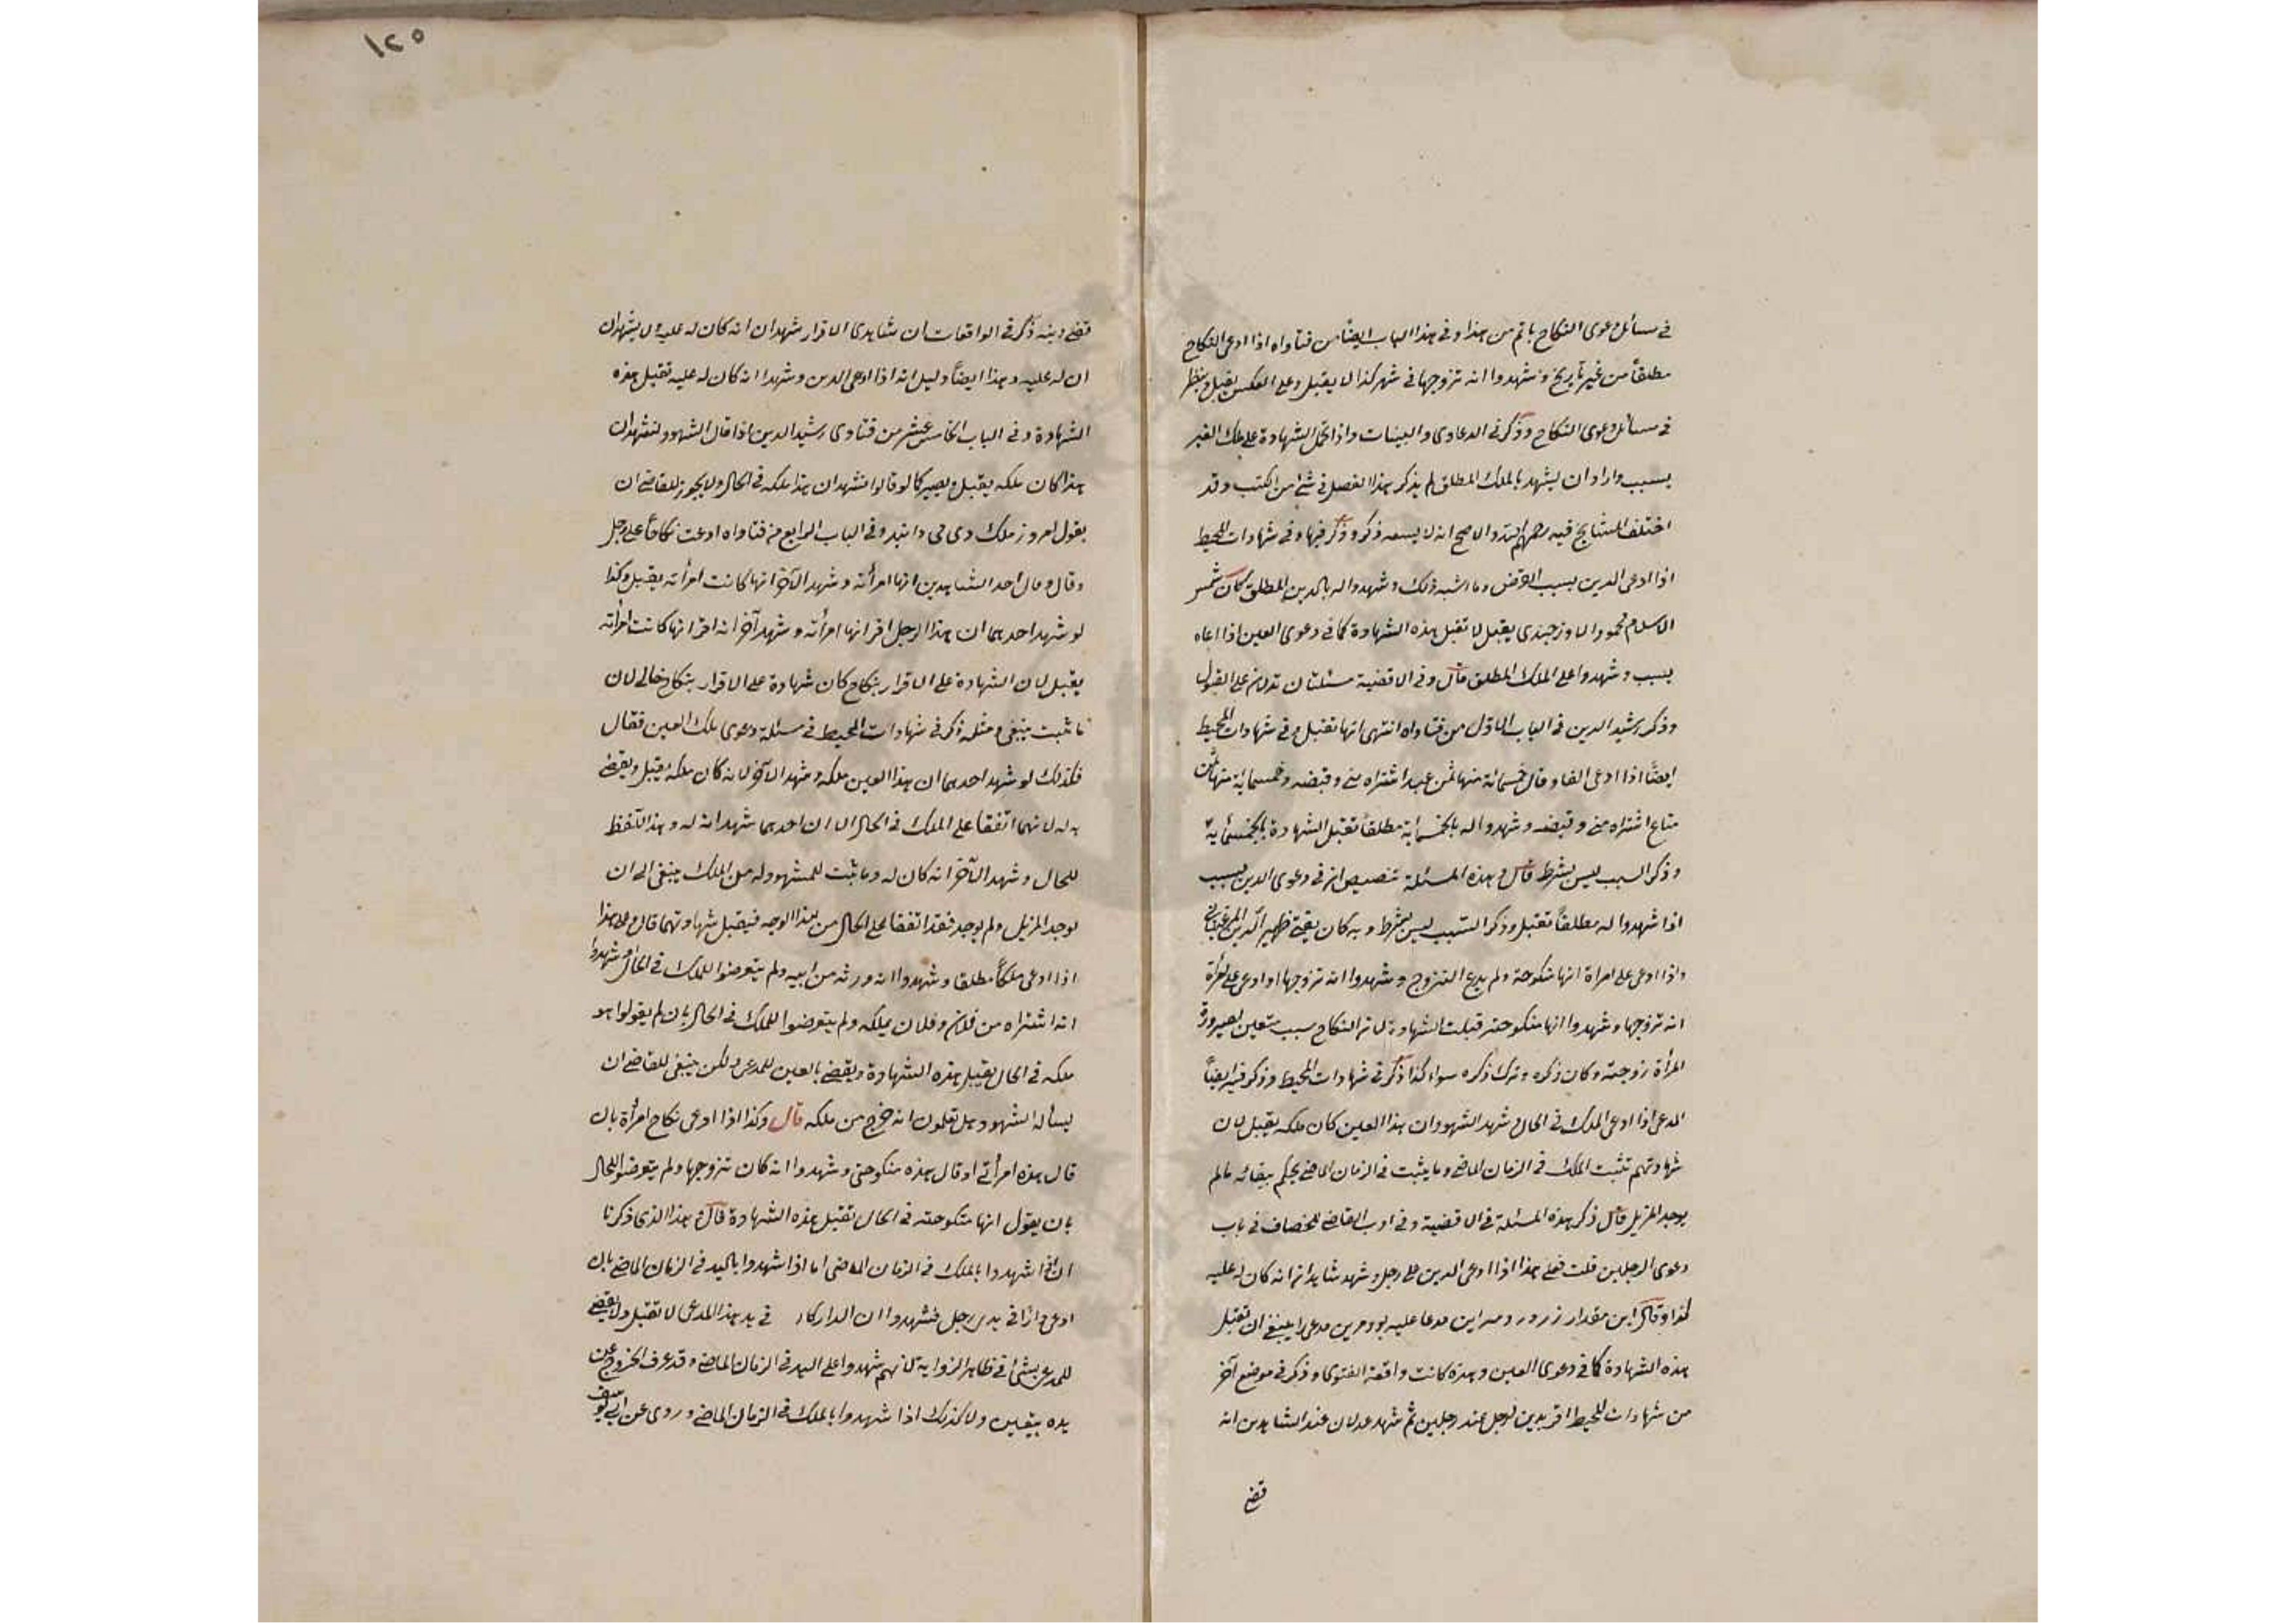 في مسائل دعوى النكاح باتم من هذا وفي هذا الباب ايضاً من فتاواه اذا ادعى النكاح
مطلقاً من غير تاريخ وشهدوا انه تزوجها في شهر كذا لا يقبل وعلى العكس يقبل وينظر
في مسائل دعوى النكاح وذكر في الدعاوى والبينات واذا تحمل الشهادة على ملك الغير
بسبب واراد ان يشهد بالملك المطلق لم يذكر هذا الفصل في شئ من الكتب وقد
اختلف المشايخ فيه رحمهم الله والاصح انه لا يسعه ذكره وذكر فيها وفي شهادات المحيط
اذا ادعى الدين بسبب القرض وما اشبه ذلك وشهدوا له بالدين المطلق كان شمس
الاسلام محمود الاوزجندى يقول لا تقبل هذه الشهادة كما في دعوى العين اذا ادعاه
بسبب وشهدوا على الملك المطلق قال وفي الاقضية مسئلتان تدلان على القبول
وذكر رشيد الدين في الباب الاول من فتاواه انتهى انها تقبل وفي شهادات المحيط
ايضاً اذا ادعى الفا وقال خمسمائة منها ثمن عبد اشتراه مني وقبضه وخمسماية منها ثمن
متاع اشتراه مني وقبضه وشهدوا له بالخمسماية مطلقاً تقبل الشهادة بالخمسماية
وذكر السبب ليس بشرط قال وهذه المسئلة تنصيص انه في دعوى الدين بسبب
اذا شهدوا له مطلقاً تقبل وذكر السبب ليس بشرط وبه كان يفتي ظهير الدين المرغيناني
واذا ادعى على امراة انها منكوحته ولم يدع التزوج وشهدوا انه تزوجها او ادعى على امرأة
انه تزوجها وشهدوا انها منكوحته قبلت الشهادة لان النكاح سبب متعين لصيرورة
المرأة زوجته وكان ذكره وترك ذكره سواء كذا ذكر في شهادات المحيط وذكر فيه ايضاً
المدعى اذا ادعى الملك في الحال وشهد الشهود ان هذا العين كان ملكه يقبل لان
شهادتهم تثبت الملك في الزمان الماضي وما يثبت في الزمان الماضي يحكم ببقائه مالم
يوجد المزيل قال ذكر هذه المسئلة في الاقضية وفي ادب القاضي للخصاف في باب
دعوى الرجلين قلت فعلى هذا اذا ادعى الدين على رجل وشهد شاهدان انه كان له عليه
كذا وقالا اين مقدار زر در ذمه اين مدعا عليه بود مرين مدعى را ينبغي ان تقبل
هذه الشهادة كما في دعوى العين وهذه كانت واقعة الفتوى وذكر في موضع آخر
من شهادات المحيط اقر بدين لرجل عند رجلين ثم شهد عدلان عند الشاهدين انه
قضى
١٢٥
قضى دينه ذكر في الواقعات ان شاهدى الاقرار شهدان انه كان له عليه ولا يشهدان
ان له عليه وهذا ايضاً دليل انه اذا ادعى الدين وشهدا انه كان له عليه تقبل هذه
الشهادة وفي الباب الخامس عشر من فتاوى رشيد الدين اذا قال الشهود نشهد ان
هذا كان ملكه يقبل ويصير كما لو قالوا نشهد ان هذا ملكه في الحال ولا يجوز للقاضي ان
يقول امروز ملك وى مى دانيد وفي الباب الرابع من فتاواه ادعت نكاحاً على رجل
وقال وقال احد الشاهدين انها امرأته وشهد الآخر انها كانت امرأته يقبل وكذا
لو شهد احدهما ان هذا الرجل اقر انها امرأته وشهد آخر انه اقر انها كانت امرأته
يقبل لان الشهادة على الاقرار بنكاح كان شهادة على الاقرار بنكاح حالى لان
ما ثبت يبقى ومثله ذكر في شهادات المحيط في مسئلة دعوى ملك العين فقال
فكذلك لو شهد احدهما ان هذا العين ملكه وشهد الآخر لانه كان ملكه يقبل ويقضى
به له لانهما اتفقا على الملك في الحال الا ان احدهما شهد انه له وهذا اللفظ
للحال وشهد الآخر انه كان له وما ثبت للمشهود له من الملك يبقى الى ان
يوجد المزيل ولم يوجد فقد اتفقا على الحال من هذا الوجه فيقبل شهادتهما قال وعلى هذا
اذا ادعى ملكاً مطلقا وشهدوا انه ورثه من ابيه ولم يتعرضوا للملك في الحال او شهدوا
انه اشتراه من فلان وفلان يملكه ولم يتعرضوا للملك في الحال بان لم يقولوا هو
ملكه في الحال يقبل هذه الشهادة ويقضى بالعين للمدعى ولكن ينبغي للقاضي ان
يسأل الشهود هل تعلمون انه خرج من ملكه قال وكذا اذا ادعى نكاح امرأة بان
قال هذه امرأتي او قال هذه منكوحتى وشهدوا انه كان تزوجها ولم يتعرضوا للحال
بان يقول انها منكوحته في الحال تقبل هذه الشهادة قال وهذا الذى ذكرنا
ان اذا شهدوا بالملك في الزمان الماضى اما اذا شهدوا باليد في الزمان الماضي بان
ادعى دارا في يدى رجل فشهدوا ان الدار كان في يد هذا المدعى لا تقبل ولا يقضى
للمدعى بشئ في ظاهر الرواية لانهم شهدوا على اليد في الزمان الماضي وقد عرف الخروج عن
يده بيقين ولا كذلك اذا شهدوا بالملك في الزمان الماضي وروى عن ابي يوسف